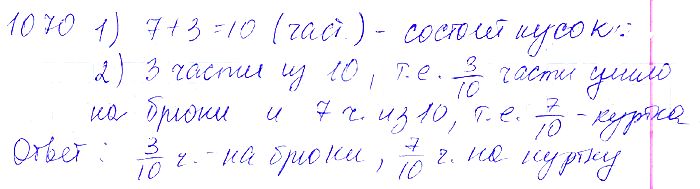 1070 1) 7+3=10 (част.) - состоит кусок:
2) 3 части из 10, т.е. 3/10 части ушло
на брюки и 7 ч. из 10, т.е. 7/10 - куртка
Ответ: 3/10 ч. - на брюки, 7/10 ч. на куртку